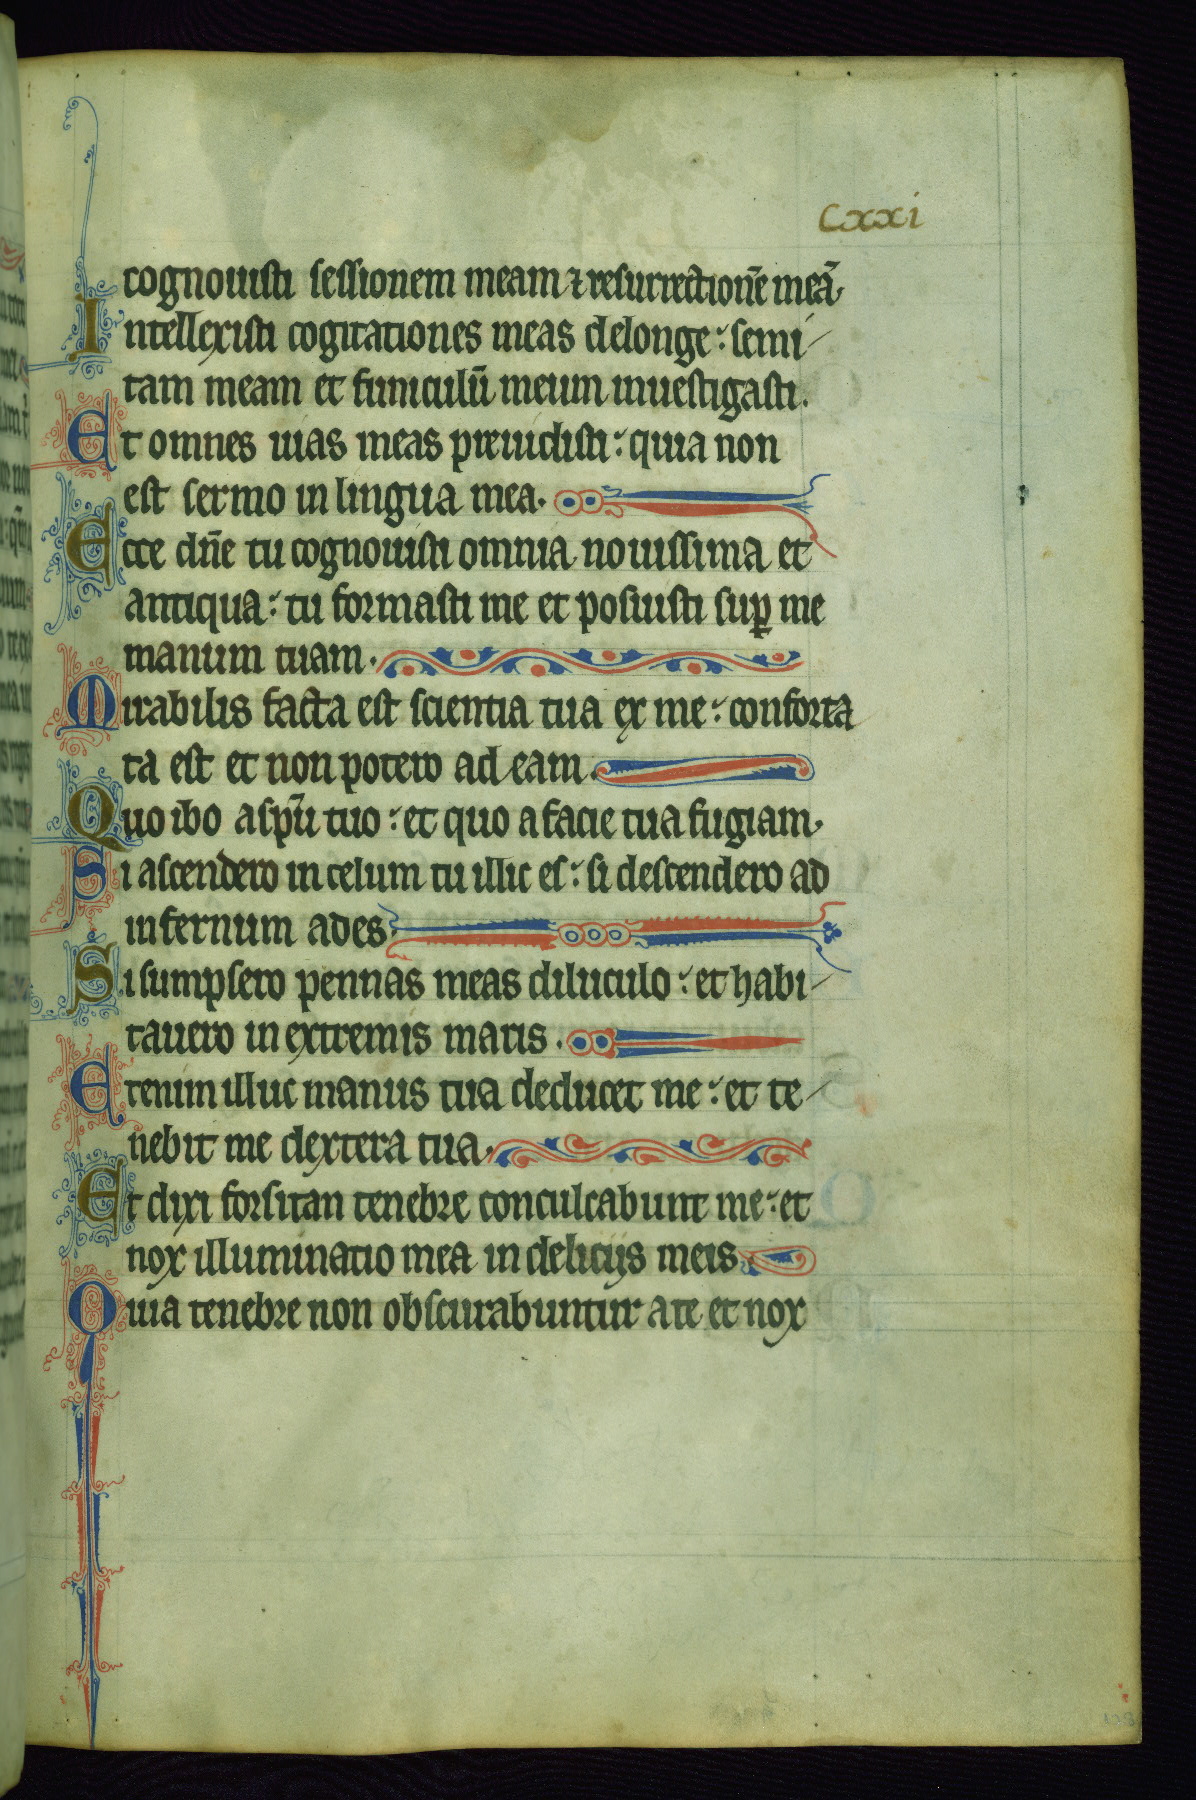 Cxxi
cognouisti sessionem meam ⁊ resurrectionē meā.
Intellexisti cogitationes meas delonge: semi
tam meam et funiculū meum inuestigasti.
Et omnes uias meas preuidisti: quia non
est sermo in lingua mea.
Ecce dn̄e tu cognouisti omnia nouissima et
antiqua: tu formasti me et posuisti suꝑ me
manum tuam.
Mirabilis facta est scientia tua ex me: conforta
ta est et non potero ad eam.
Quo ibo a sp̄u tuo: et quo a facie tua fugiam.
Si ascendero in celum tu illic es: si descendero ad
infernum ades.
Si sumpsero pennas meas diluculo: et habi
tauero in extremis maris.
Etenim illuc manus tua deducet me: et te
nebit me dextera tua.
Et dixi forsitan tenebre conculcabunt me: et
nox illuminatio mea in delicijs meis.
Quia tenebre non obscurabuntur a te et nox